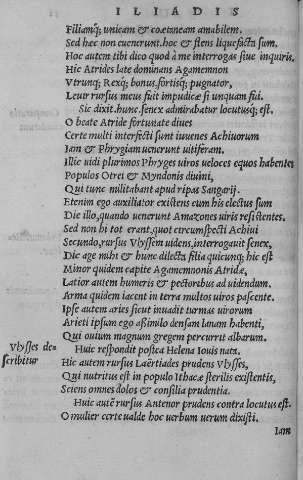 ILIADIS
Filiamq; unicam & coetaneam amabilem.
Sed hæc non euenerunt. hoc & flens liquefacta sum.
Hoc autem tibi dico quod à me interrogas siue inquiris.
Hic Atrides late dominans Agamemnon
Vtrunq; Rexq; bonus, fortisq; pugnator,
Leuir rursus meus fuit impudicæ si unquam fui.
Sic dixit. hunc senex admirabatur locutusq; est.
O beate Atride fortunate diues
Certe multi interfecti sunt iuuenes Achiuorum
Iam & Phrygiam uenerunt uitiferam.
Illic uidi plurimos Phryges uiros ueloces equos habentes
Populos Otrei & Myndonis diuini,
Qui tunc militabant apud ripas Sangarij.
Etenim ego auxiliator existens cum his electus sum
Die illo, quando uenerunt Amazones uiris resistentes.
Sed non hi tot erant, quot circumspecti Achiui
Secundo, rursus Vlyssem uidens, interrogauit senex,
Dic age mihi & hunc dilecta filia quicunq; hic est
Minor quidem capite Agamemnonis Atridæ,
Latior autem humeris & pectoribus ad uidendum.
Arma quidem iacent in terra multos uiros pascente.
Ipse autem aries sicut inuadit turmas uirorum
Arieti ipsum ego assimilo densam lanam habenti,
Qui ouium magnum gregem percurrit albarum.
Huic respondit postea Helena Iouis nata.
Vlysses de=
scribitur
Hic autem rursus Laërtiades prudens Vlysses,
Qui nutritus est in populo Ithacæ sterilis existentis,
Sciens omnes dolos & consilia prudentia.
Huic autẽ rursus Antenor prudens contra locutus est.
O mulier certe ualde hoc uerbum uerum dixisti.
Iam